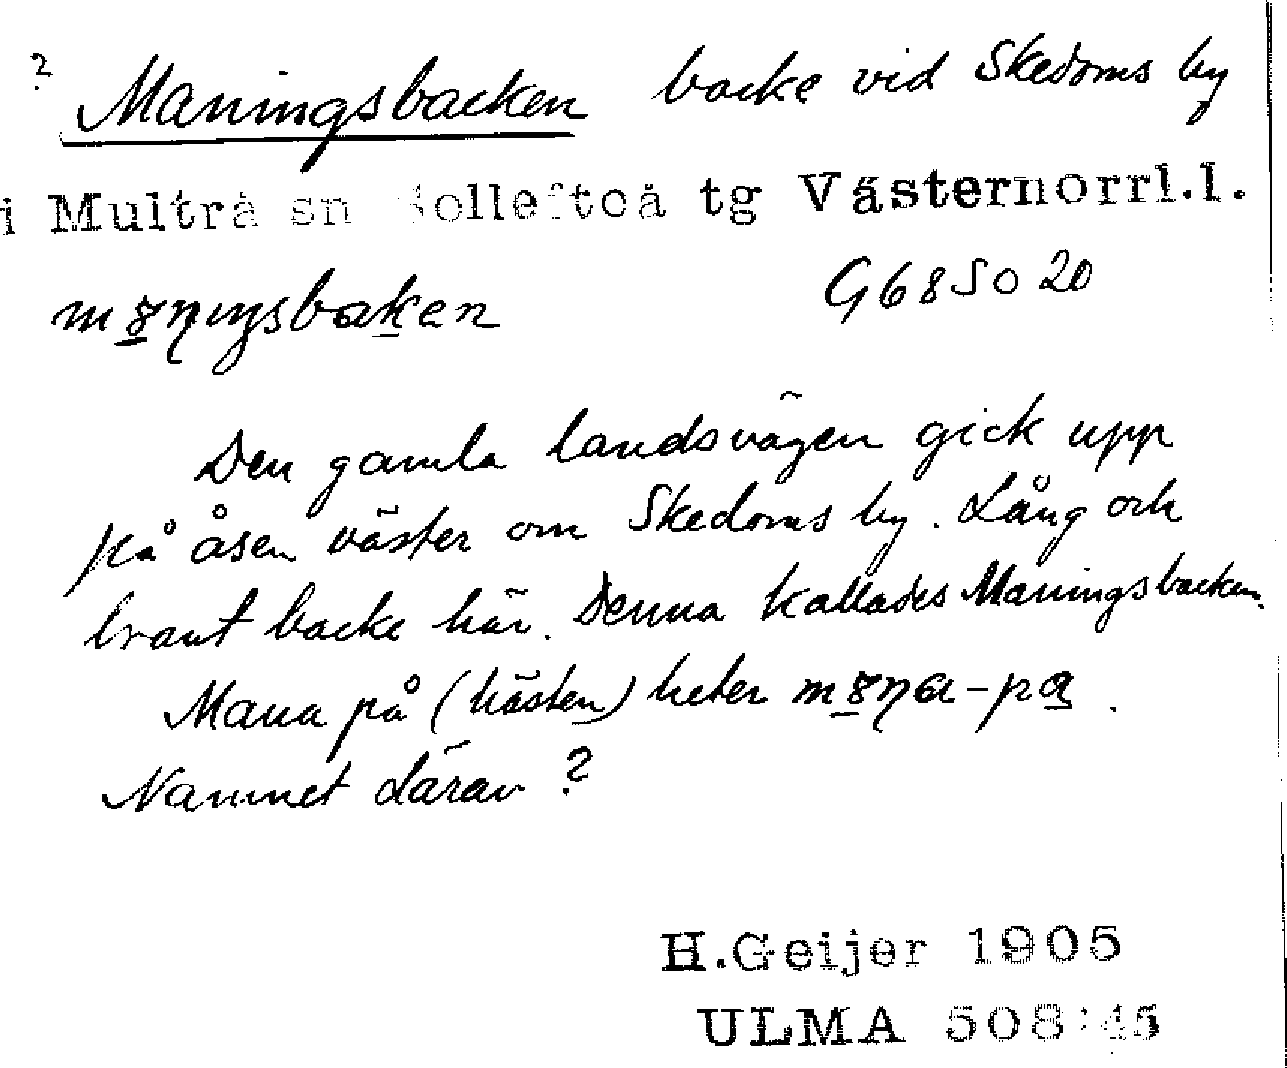 ? Maningsbacken backe vid Skedoms by
i Multrå sn Sollefteå tg Västernorrl.l.
G68So20
Den gamla landsvägen gick upp
på åsen väster om Skedoms by. Lång och
brant backe här. Denna kallades Maningsbacken.
Mana på (hästen) heter
Namnet därav?
H.Geijer 1905
ULMA 508:45